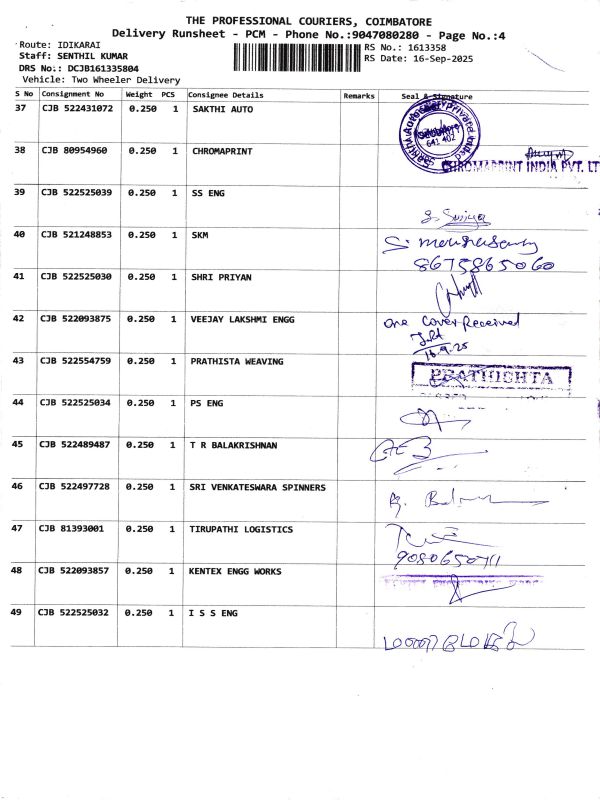 THE PROFESSIONAL COURIERS, COIMBATORE
Delivery Runsheet - PCM - Phone No.:9047080280 - Page No.:4
Route: IDIKARAI
RS No.: 1613358
Staff: SENTHIL KUMAR
RS Date: 16-Sep-2025
DRS No.: DCJB161335804
Vehicle: Two Wheeler Delivery
S No Consignment No Weight PCS Consignee Details Remarks Seal & Signature
37 CJB 522431072 0.250 1 SAKTHI AUTO
641 402
38 CJB 80954960 0.250 1 CHROMAPRINT
CHROMAPRINT INDIA PVT. LT
39 CJB 522525039 0.250 1 SS ENG
40 CJB 521248853 0.250 1 SKM
8675865060
41 CJB 522525030 0.250 1 SHRI PRIYAN
42 CJB 522093875 0.250 1 VEEJAY LAKSHMI ENGG one Cover Received
16.9.25
43 CJB 522554759 0.250 1 PRATHISTA WEAVING
PRATHISHTA
44 CJB 522525034 0.250 1 PS ENG
45 CJB 522489487 0.250 1 T R BALAKRISHNAN
46 CJB 522497728 0.250 1 SRI VENKATESWARA SPINNERS
47 CJB 81393001 0.250 1 TIRUPATHI LOGISTICS
48 CJB 522093857 0.250 1 KENTEX ENGG WORKS
49 CJB 522525032 0.250 1 I S S ENG